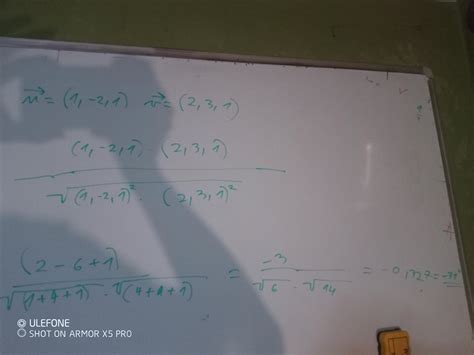 u⃗ = (1, -2, 1) v⃗ = (2, 3, 1)
(1, -2, 1) · (2, 3, 1)
√(1, -2, 1)² · (2, 3, 1)²
(2 - 6 + 1)
√(1+4+1) · √(4+4+1) = -3 / √6 · √14 =
ULEFONE
SHOT ON ARMOR X5 PRO